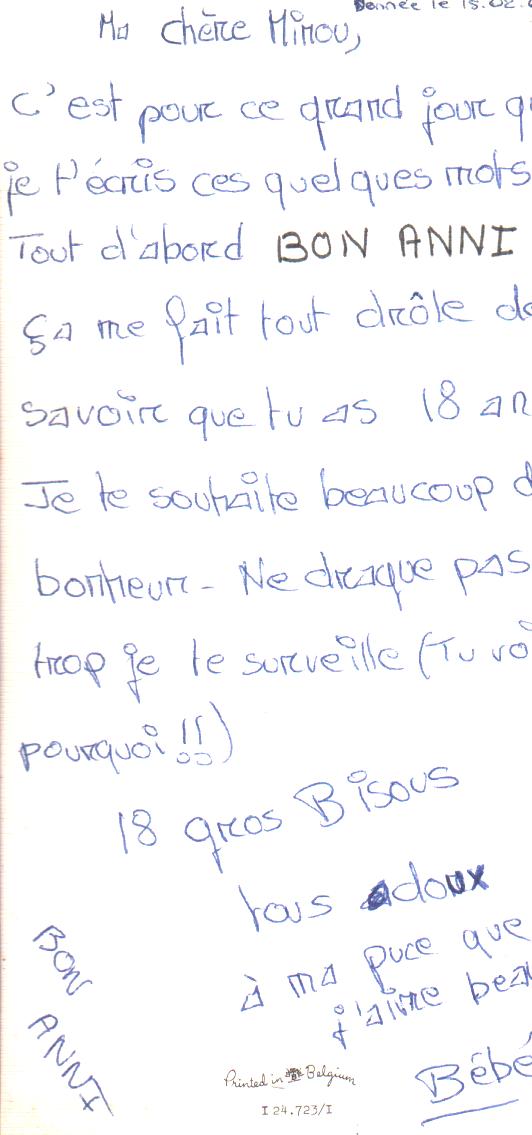 Donnée le 15.02.
Ma chère Minou,
C'est pour ce grand jour qu
je t'écris ces quelques mots
Tout d'abord BON ANNI
ça me fait tout drôle de
savoir que tu as 18 an
Je te souhaite beaucoup d
bonheur - Ne draque pas
trop je te surveille (Tu voi
pourquoi !!)
18 gros Bisous
tous doux
à ma puce que
j'aime beau
Bébé
BON
ANNI
Printed in Belgium
I 24.723/I